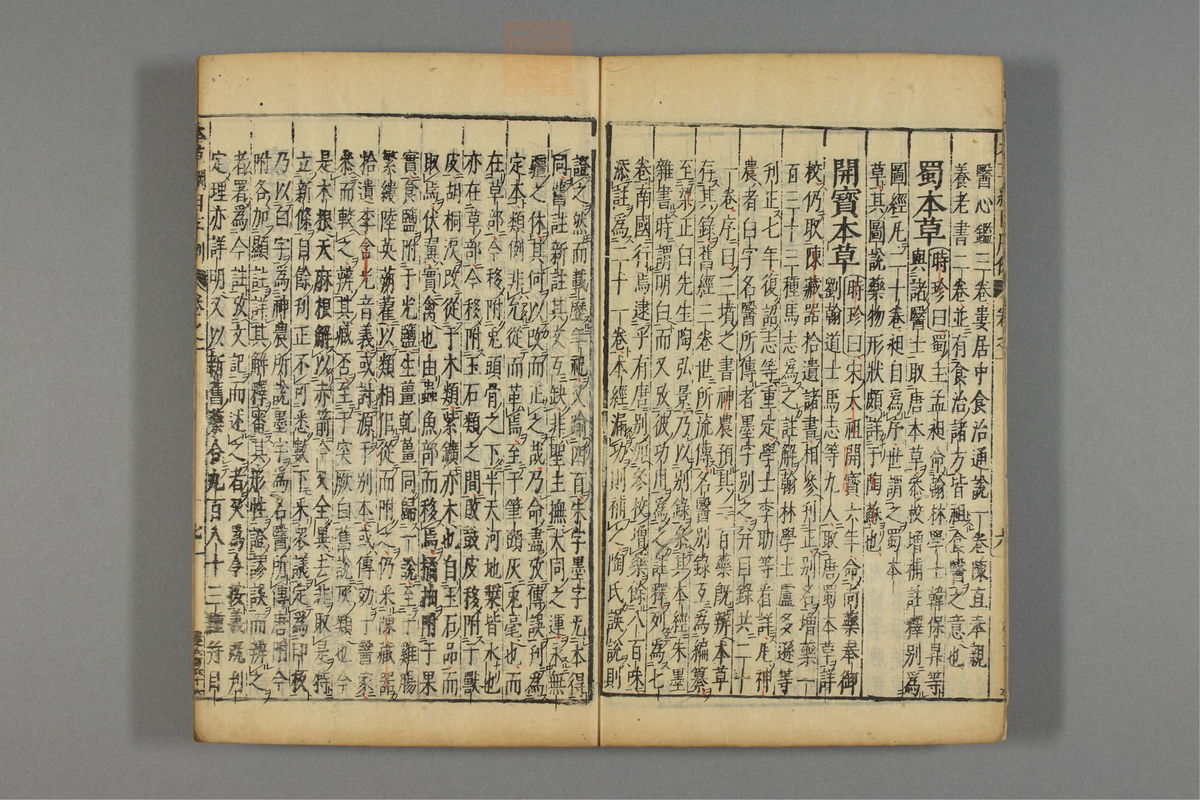 醫心鑑三卷婁居中食治通說一卷陳直奉親
養老書二卷並有食治諸方皆祖食醫之意也
蜀本草時珍曰蜀主孟昶命翰林學士韓保昇等
與諸醫士取唐本草參校增補註釋別爲
圖經凡二十卷昶自爲序世謂之蜀本
草其圖說藥物形狀頗詳于陶蘇也
開寶本草時珍曰宋太祖開寶六年命尚藥奉御
劉翰道士馬志等九人取唐蜀本草詳
校仍取陳藏器拾遺諸書相參刋正別名增藥一
百三十三種馬志爲之註解翰林學士盧多遜等
刋正七年復詔志等重定學士李昉等看詳凡神
農者白字名醫所傳者墨字別之并目錄共二十
一卷序曰三墳之書神農預其一百藥旣辨本草
存其錄舊經三卷世所流傳名醫別錄互爲編纂
至梁正白先生陶弘景乃以別錄參其本經朱墨
雜書時謂明白而又攷彼功用爲之註釋列爲七
卷南國行焉逮乎有唐別加參校增藥餘八百味
添註爲二十一卷本經漏功則補之陶氏誤說則
證之然而載歷年祀又踰四百朱字墨字无本得
同舊註新註其文互缺非聖主撫大同之運永無
疆之休其何以改而正之哉乃命盡攷傳誤刋爲
定本類例非允從而革焉至于筆頭灰兎毫也而
在草部今移附兎頭骨之下半天河地漿皆水也
亦在草部今移附玉石類之間敗鼓皮移附于獸
皮胡桐淚改從于木類紫鑛亦木也自玉石品而
取焉伏翼實禽也由蟲魚部而移焉橘柚附于果
實食鹽附于光鹽生薑乾薑同歸一說至于雞腸
繁縷陸英蒴藋以類相佀從而附之仍采陳藏器
拾遺李含光音義或討源于別本或傳効于醫家
參而較之辨其臧否至于突厥白舊說灰類也今
是木根天麻根解以赤箭今又全異去非取是特
立新條自餘刋正不可悉數下采衆議定爲印板
乃以白字爲神農所說墨字爲名醫所傳唐附今
附各加顯註詳其解釋審其形性證謬誤而辨之
者署爲今註攷文記而述之者又爲今按義旣刋
定理亦詳明又以新舊藥合九百八十三種并目